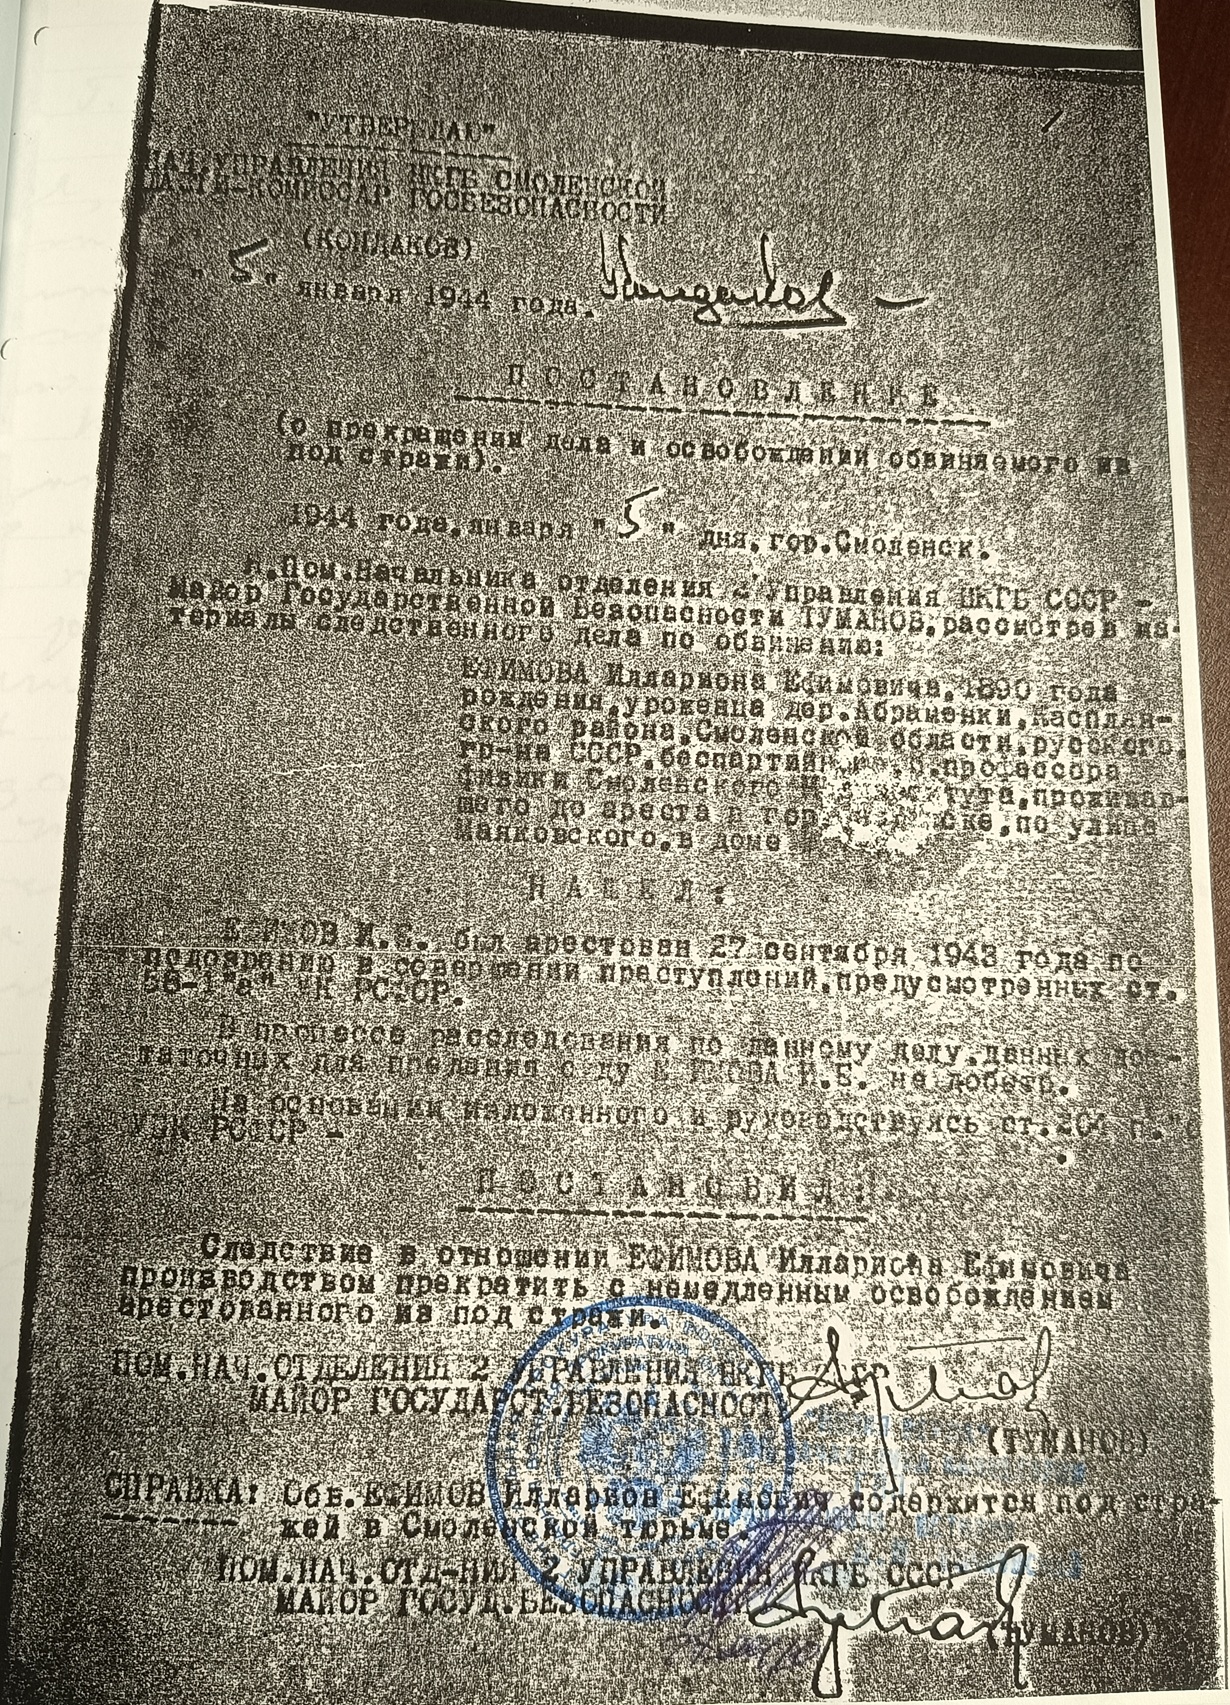 "УТВЕРЖДАЮ"
НАЧ.УПРАВЛЕНИЯ НКГБ СМОЛЕНСКОЙ
КОМИССАР ГОСБЕЗОПАСНОСТИ
(КОНДАКОВ)
"5" января 1944 года.
Кондаков
ПОСТАНОВЛЕНИЕ
(о прекращении дела и освобождении обвиняемого из
под стражи).
1944 года,января "5" дня,гор.Смоленск.
Я.Пом.Начальника отделения 2 Управления НКГБ СССР -
Майор Государственной Безопасности ТУМАНОВ,рассмотрев ма-
териалы следственного дела по обвинению:
ЕФИМОВА Иллариона Ефимовича,1890 года
рождения,уроженца дер.Абраменки,Касплян-
ского района,Смоленской области,русского,
гр-на СССР,беспартийного,профессора
физики Смоленского тута,проживав-
шего до ареста в гор. ске,по улице
Маяковского,в доме
НАШЕЛ:
ЕФИМОВ И.Е. был арестован 27 сентября 1943 года по
подозрению в совершении преступлений,предусмотренных ст.
58-1"а" УК РСФСР.
В процессе расследования по данному делу,данных дос-
таточных для предания суду ЕФИМОВА И.Е. не добыто.
На основании изложенного и руководствуясь ст.204 п."
УПК РСФСР -
ПОСТАНОВИЛ:
Следствие в отношении ЕФИМОВА Иллариона Ефимовича
производством прекратить с немедленным освобождением
арестованного из под стражи.
ПОМ.НАЧ.ОТДЕЛЕНИЯ 2 УПРАВЛЕНИЯ НКГБ СССР
МАЙОР ГОСУДАРСТ.БЕЗОПАСНОСТИ
(ТУМАНОВ)
СПРАВКА: Обв.ЕФИМОВ Илларион Ефимович содержится под стра-
жей в Смоленской тюрьме.
ПОМ.НАЧ.ОТД-НИЯ 2 УПРАВЛЕНИЯ НКГБ СССР
МАЙОР ГОСУД.БЕЗОПАСНОСТИ
(ТУМАНОВ)